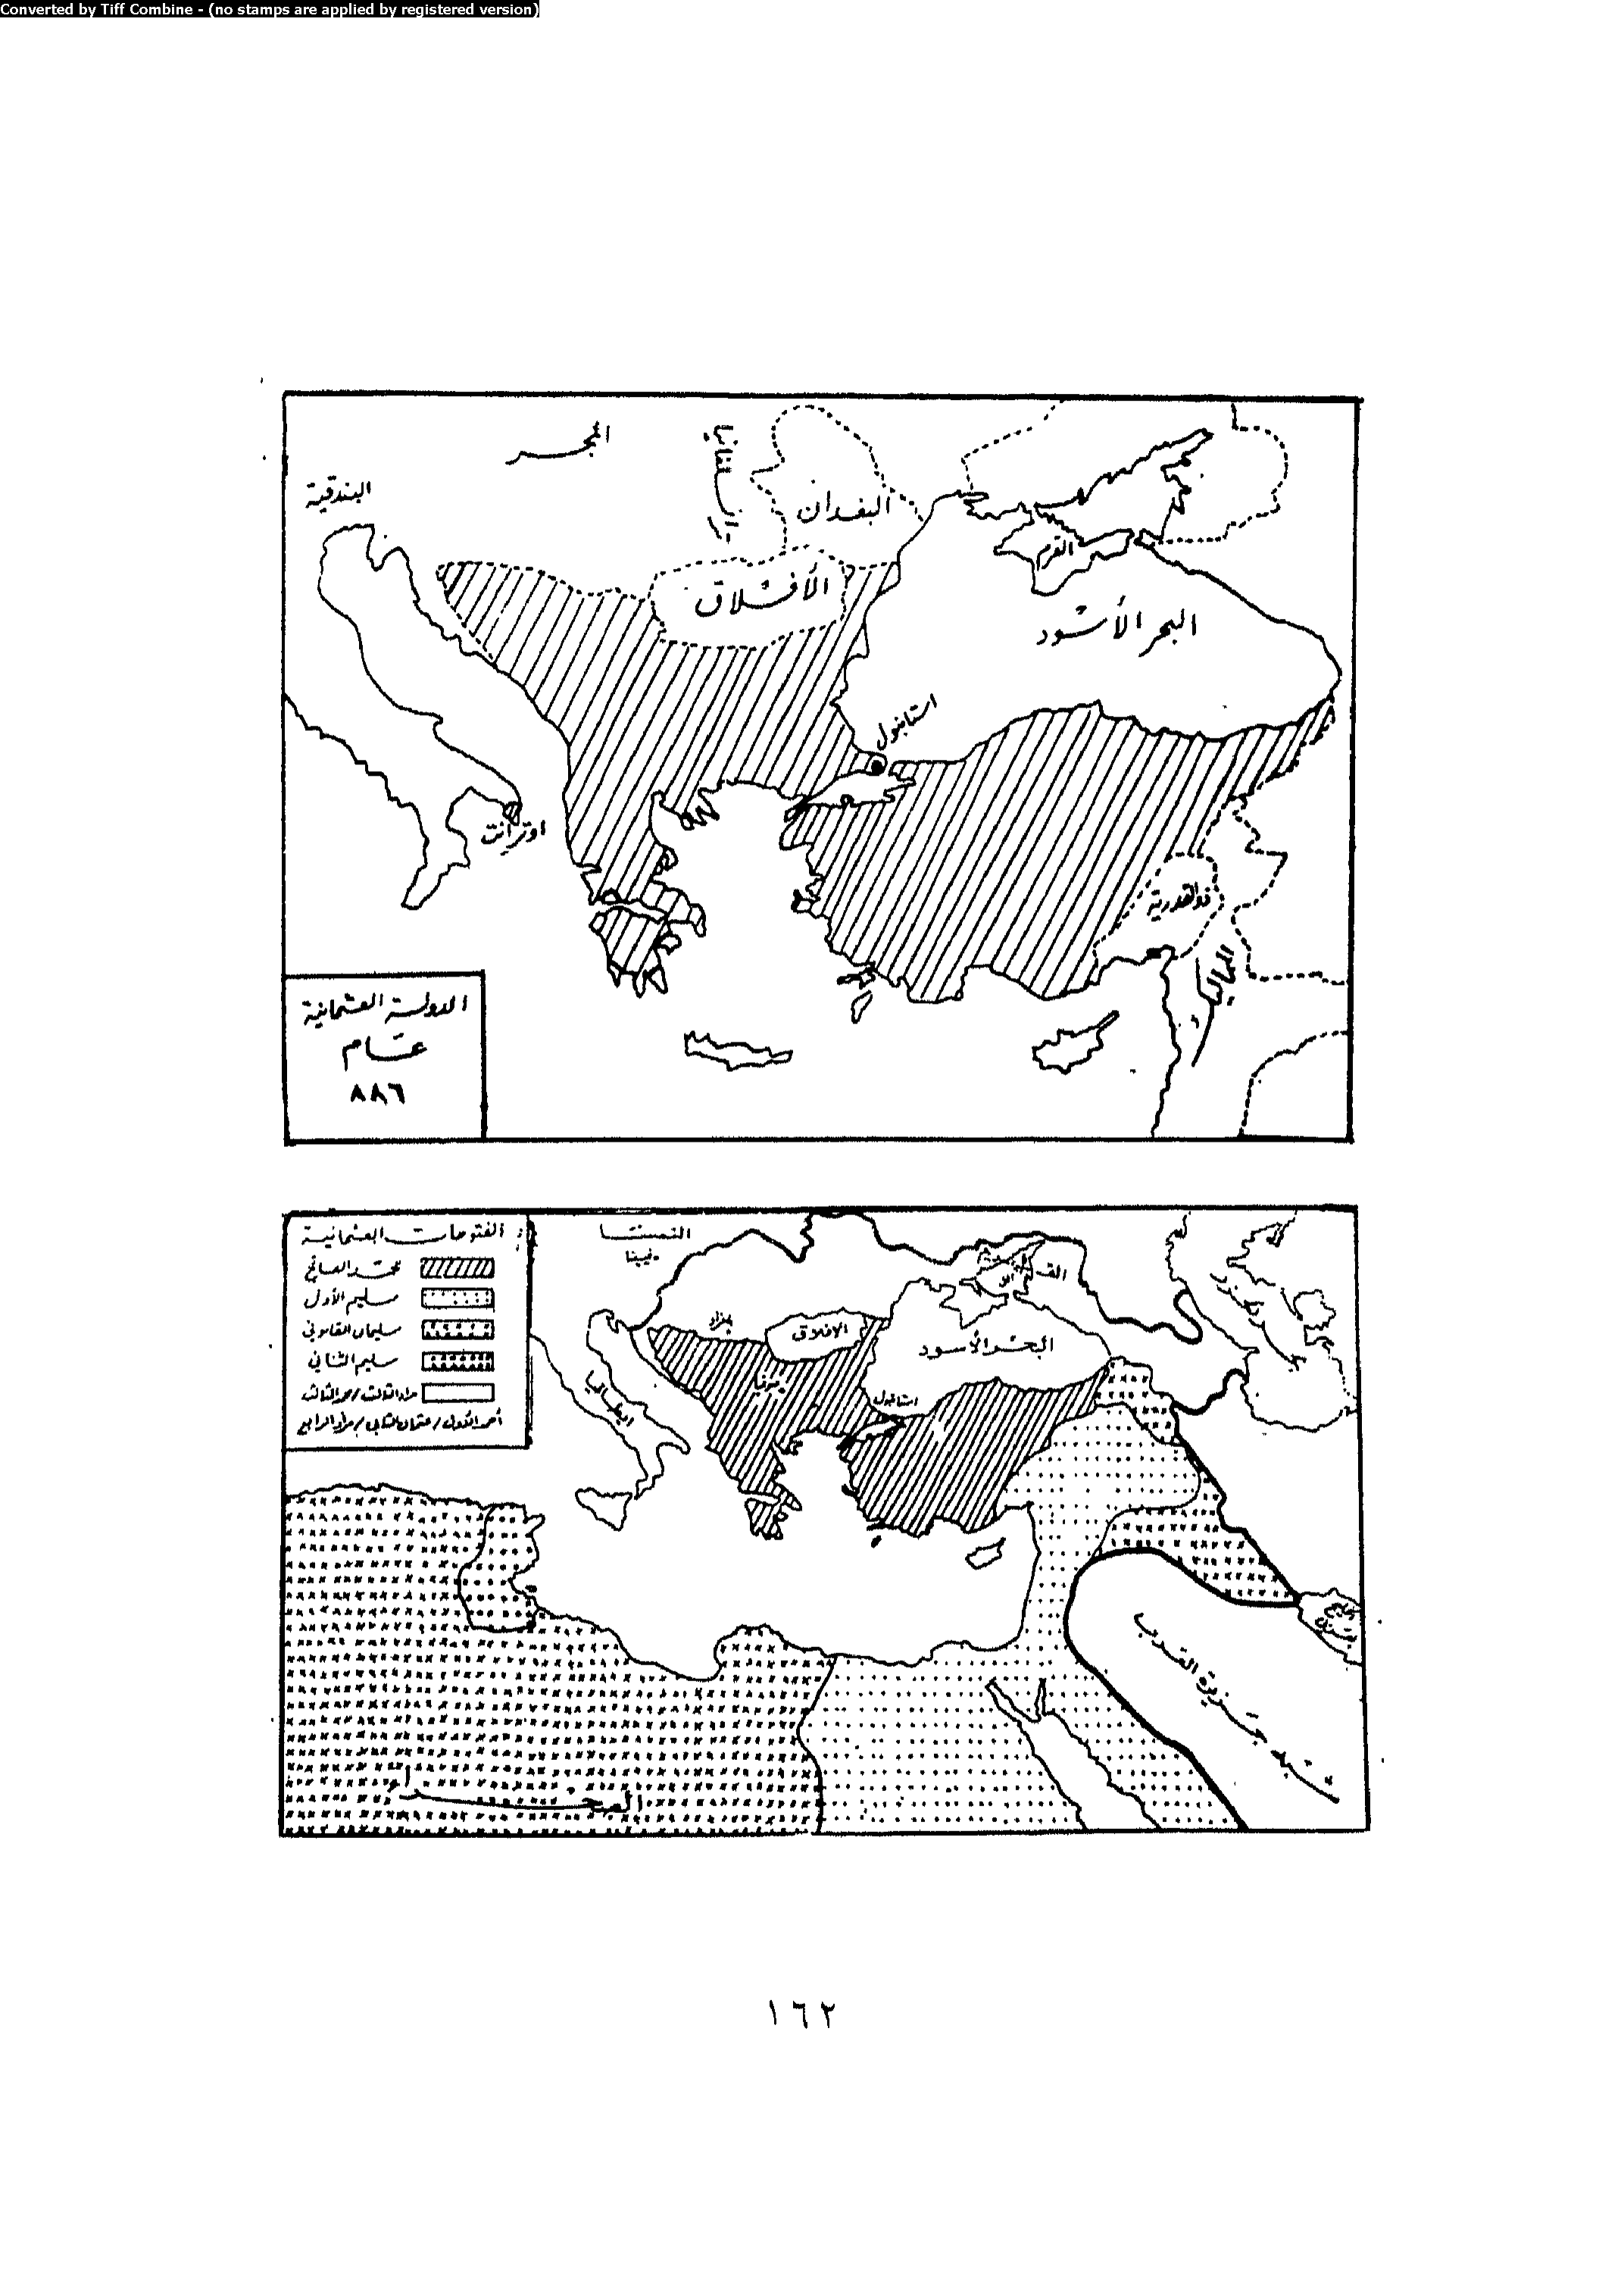 Converted by Tiff Combine - (no stamps are applied by registered version)
المجر
البندقية
البغدان
القرم
الأفلاق
البحر الأسود
استانبول
اوترانت
ذو القدرية
المماليك
الدولة العثمانية
عام
٨٨٦
الفتوحات العثمانية
محمد الفاتح
سليم الأول
سليمان القانوني
سليم الثاني
مراد الثالث / محمد الثالث
أحمد الأول / عثمان الثاني / مراد الرابع
النمسا
فيينا
بلغراد
الافلاق
البحر الأسود
صوفيا
استانبول
ايطاليا
شبه جزيرة العرب
١٦٢